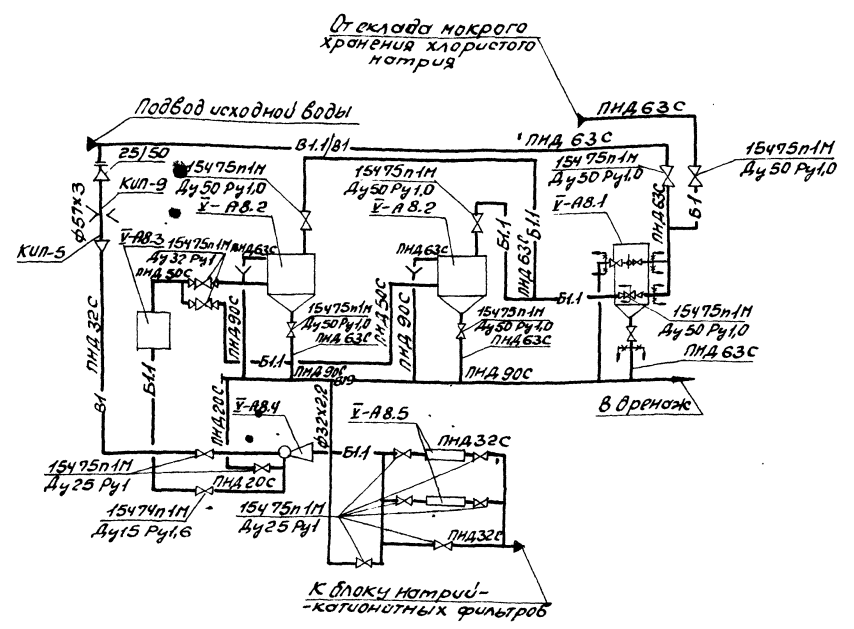 От склада мокрого
хранения хлористого
натрия
ПНД 63С
Подвод исходной воды
В1.1/В1
ПНД 63С
25/50
15ч75п1М
Ду50 Ру1,0
15ч75п1М
Ду50 Ру1,0
15ч75п1М
Ду50 Ру1,0
15ч75п1М
Ду50 Ру1,0
КИП-9
ф57х3
V-А8.2
V-А8.2
V-А8.1
ПНД63С
Б1
КИП-5
V-А8.3
15ч75п1М
Ду32 Ру1
ПНД63С
ПНД63С
Б1.1
ПНД 63С
Б1.1
ПНД 50С
Б1.1
ПНД 32С
ПНД90С
15ч75п1М
Ду50 Ру1,0
ПНД 63С
ПНД50С
ПНД 90С
15ч75п1М
Ду50 Ру1,0
ПНД63С
15ч75п1М
Ду50 Ру1,0
ПНД 63С
Б1.1
Б1.1
ПНД 90С
В19
ПНД 90С
В дренаж
В1
ПНД20С
V-А8.4
ф32х2,2
V-А8.5
Б1.1
ПНД32С
15ч75п1М
Ду25 Ру1
ПНД20С
15ч74п1М
Ду15 Ру1,6
15ч75п1М
Ду25 Ру1
ПНД32С
К блоку натрий-
-катионитных фильтров